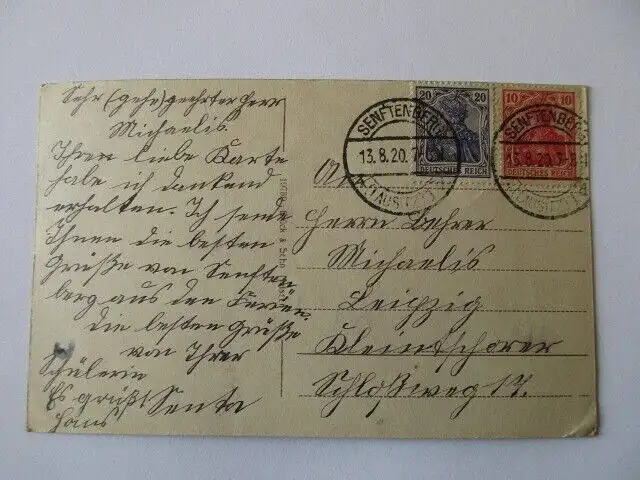 Sehr (geehr) geehrter Herr
Michaelis.
Ihren liebe Karte
habe ich dankend
erhalten. Ich sende
Ihnen die besten
Grüße von Senften
berg aus den Ferien.
Die besten Grüße
von Ihrer
Schülerin
Senta
Es grüßt
Hans
20 20
DEUTSCHES REICH
10 10
DEUTSCHES REICH
SENFTENBERG
13.8.20. 7
(LAUSITZ)
SENFTENBERG
13.8.20. 7-8
(LAUSITZ)
An
Herrn Lehrer
Michaelis
Leipzig
Kleintschocher
Schloßweg 17.